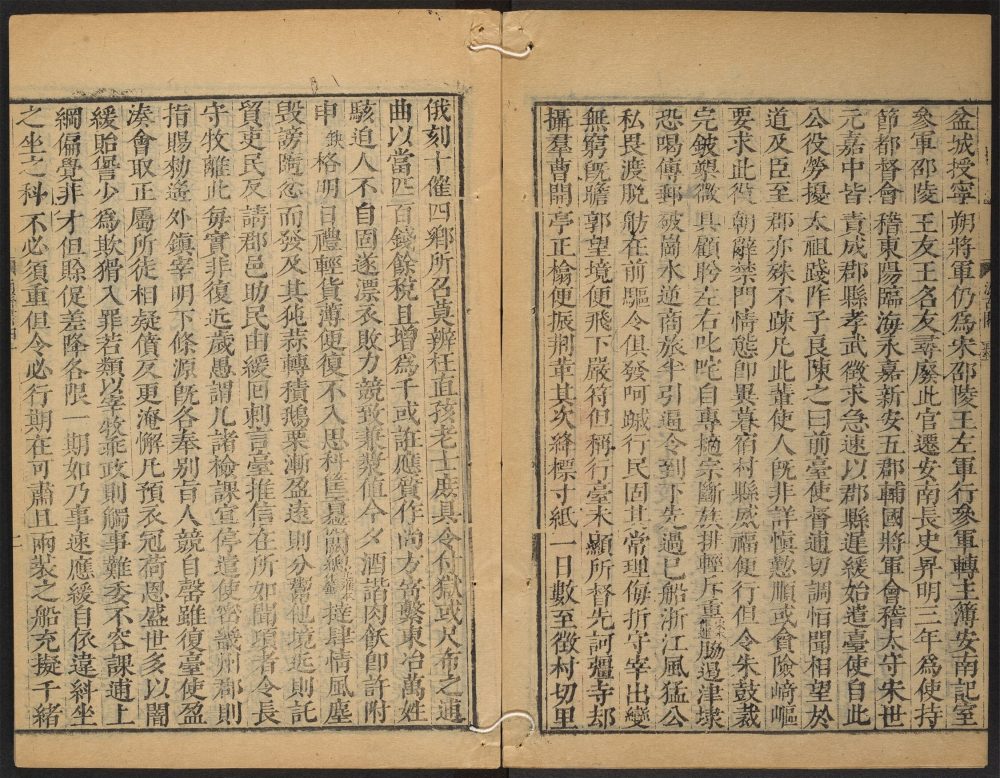 盆城授寧朔將軍仍爲宋邵陵王左軍行參軍轉主簿安南記室
參軍邵陵王友王名友尋廢此官遷安南長史昇明三年爲使持
節都督會稽東陽臨海永嘉新安五郡輔國將軍會稽太守宋世
元嘉中皆責成郡縣孝武徵求急速以郡縣遲緩始遣臺使自此
公役勞擾太祖踐阼子良陳之曰前臺使督逋切調恒聞相望於
道及臣至郡亦殊不疎凡此輩使人旣非詳慎懃順或貪險崎嶇
要求此役朝辭禁門情態卽異暮宿村縣威福便行但令朱鼓裁
完鈹槊微具顧盼左右叱咤自專擿宗斷族排輕斥重脅遏津埭
恐喝傳郵破崗水逆商旅半引逼令到下先過己船浙江風猛公
私畏渡脫舫在前驅令俱發呵蹴行民固其常理侮折守宰出變
無窮旣瞻郭望境便飛下嚴符但稱行臺未顯所督先訶彊寺却
攝羣曹開亭正榻便振荆革其次絳標寸紙一日數至徵村切里
俄刻十催四鄉所召莫辨枉直孩老士庶具令付獄或尺布之逋
曲以當匹百錢餘稅且增爲千或詐應質作尚方寄繫東冶萬姓
駭迫人不自固遂漂衣敗力競致兼漿值今夕酒諧肉飫卽許附
申缺格明日禮輕貨薄便復不入恩科筐貢撻肆情風塵
毀謗隨忿而發及其㹠蒜轉積鵝栗漸盈遠則分鬻他境近則託
貿吏民反請郡邑助民由緩回刺言臺推信在所如聞頃者令長
守牧離此每實非復近歲愚謂凡諸檢課宜停遣使密畿州郡則
指賜勑遙外鎮宰明下條源旣各奉別旨人競自罄雖復臺使盈
湊會取正屬所徒相疑僨反更淹懈凡預衣冠荷恩盛世多以闇
緩貽諐少爲欺猾入罪若類以宰牧乖政則觸事難委不容課逋上
綱偏覺非才但賒促差降各限一期如乃事速應緩自依違糾坐
之坐之科不必須重但令必行期在可肅且兩裝之船充擬千緒